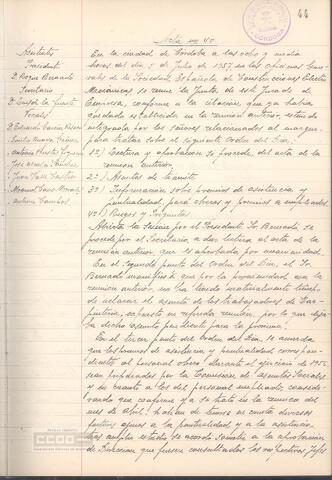 44
Acta nº 40.
Asistentes
Presidente
D. Roque Bernardo
Secretario
Vocales
D. Eduardo
Emilio
Antonio
José
Juan
Manuel
Antonio
En la ciudad de Córdoba a las ocho y media
horas del día 5 de Julio de 1957, en las oficinas Gene-
rales de la Sociedad Española de Construcciones Electro
Mecánicas se reune la Junta de este Jurado de
Empresa, conforme a la citación que ya había
quedado establecida en la reunión anterior, estando
integrada por los señores relacionados al margen,
para tratar sobre el siguiente Orden del Día:
1º) Lectura y aprobación, si procede, del acta de la
reunión anterior.
2º) Asuntos de trámite.
3º) Información sobre premios de asistencia y
puntualidad, para obreros y premios a empleados
4º) Ruegos y Preguntas.
Abierta la Sesión por el Presidente Sr. Bernardo, se
procede por el Secretario a dar lectura al acta de la
reunión anterior que es aprobada por unanimidad.
En el Segundo punto del orden del Día, el Sr.
Bernardo manifiesta que por la proximidad con la
reunión anterior, no ha tenido materialmente tiempo
de aclarar el asunto de los trabajadores de Car-
pintería, expuesto en referida reunión, por lo que deja
dicho asunto pendiente para la próxima.
En el tercer punto del Orden del Día, se acuerda
que los premios de asistencia y puntualidad correspon-
dientes al personal obrero durante el ejercicio de 1956
sean propuestos por la Comisión de Asuntos Sociales
y en cuanto a los del personal empleado, conside-
rando que conforme ya se trató en la reunión del
mes de Abril, habían de tenerse en cuenta diversos
factores ajenos a la puntualidad y a la asistencia,
tras amplio estudio se acordó someter a la aprobación
de Dirección que fuesen consultados los respectivos Jefes